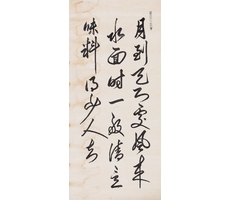 月到天心處風来
水面时一般清意
味料得少人知